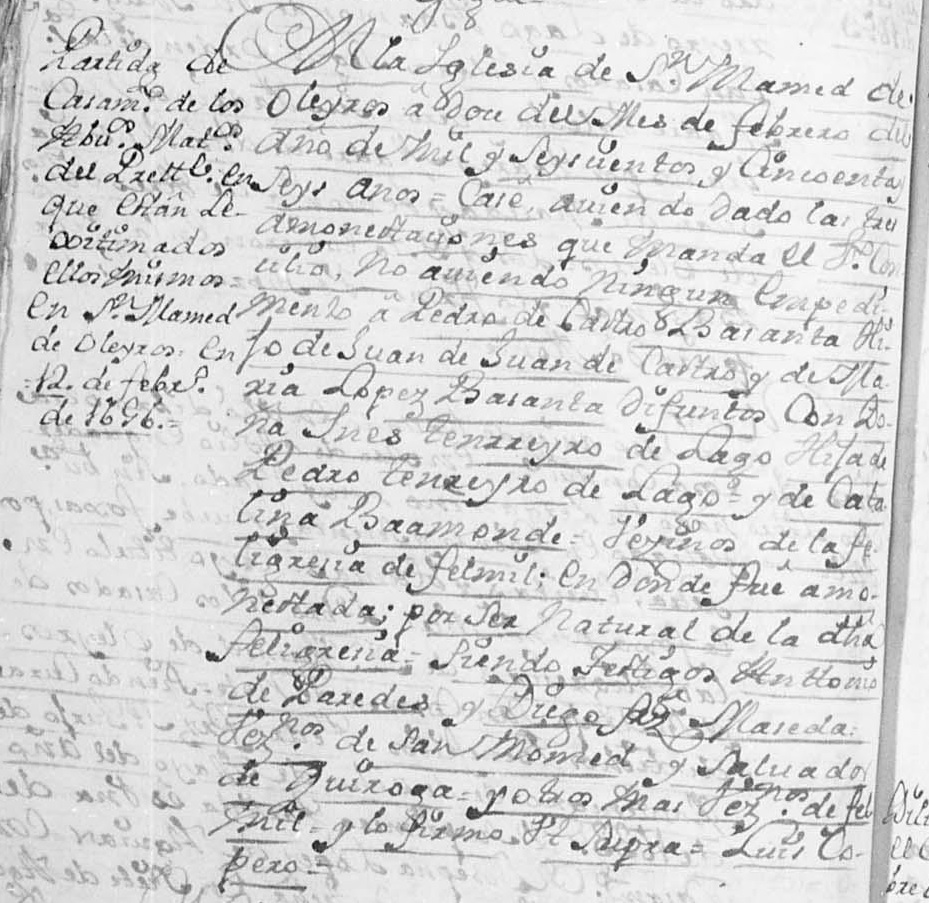 Partida de
Casam.to de los
Abu.os Mat.os
del Prett.e en
que están Le-
xitimados
ellos mismos
en S.n Mamed
de Oleyros: en
12. de febr.o
de 1656.=
En la Iglesia de S.n Mamed de
Oleyros â doze del Mes de febrero del
año de mil y Seyscientos y Cincoenta y
Seys anos = Casé, auiendo dado las tres
amonestaçiones que manda el S.to Con
cilio, no auiendo ningun empedi-
mento a Pedro de Castro Basanta Hi-
jo de Juan de Juan de Castro y de Ma-
ria Lopez Basanta Difuntos Con Do-
ña Ines Tenrreyro de Lago Hija de
Pedro Tenrreyro de Lago = y de Cata
lina Baamonde = Vezinos de la fe-
ligresia de felmil: en donde fué amo-
nestada; por ser natural de la dha
feligresia = Siendo Testigos Anttonio
de Paredes = y Diego frz Maseda:
Vez.nos de San Momed y Saluador
de Quiroga = y otros mas Vez.nos de fel
mil = y lo firmo Vt Supra = Luis Co-
pero =